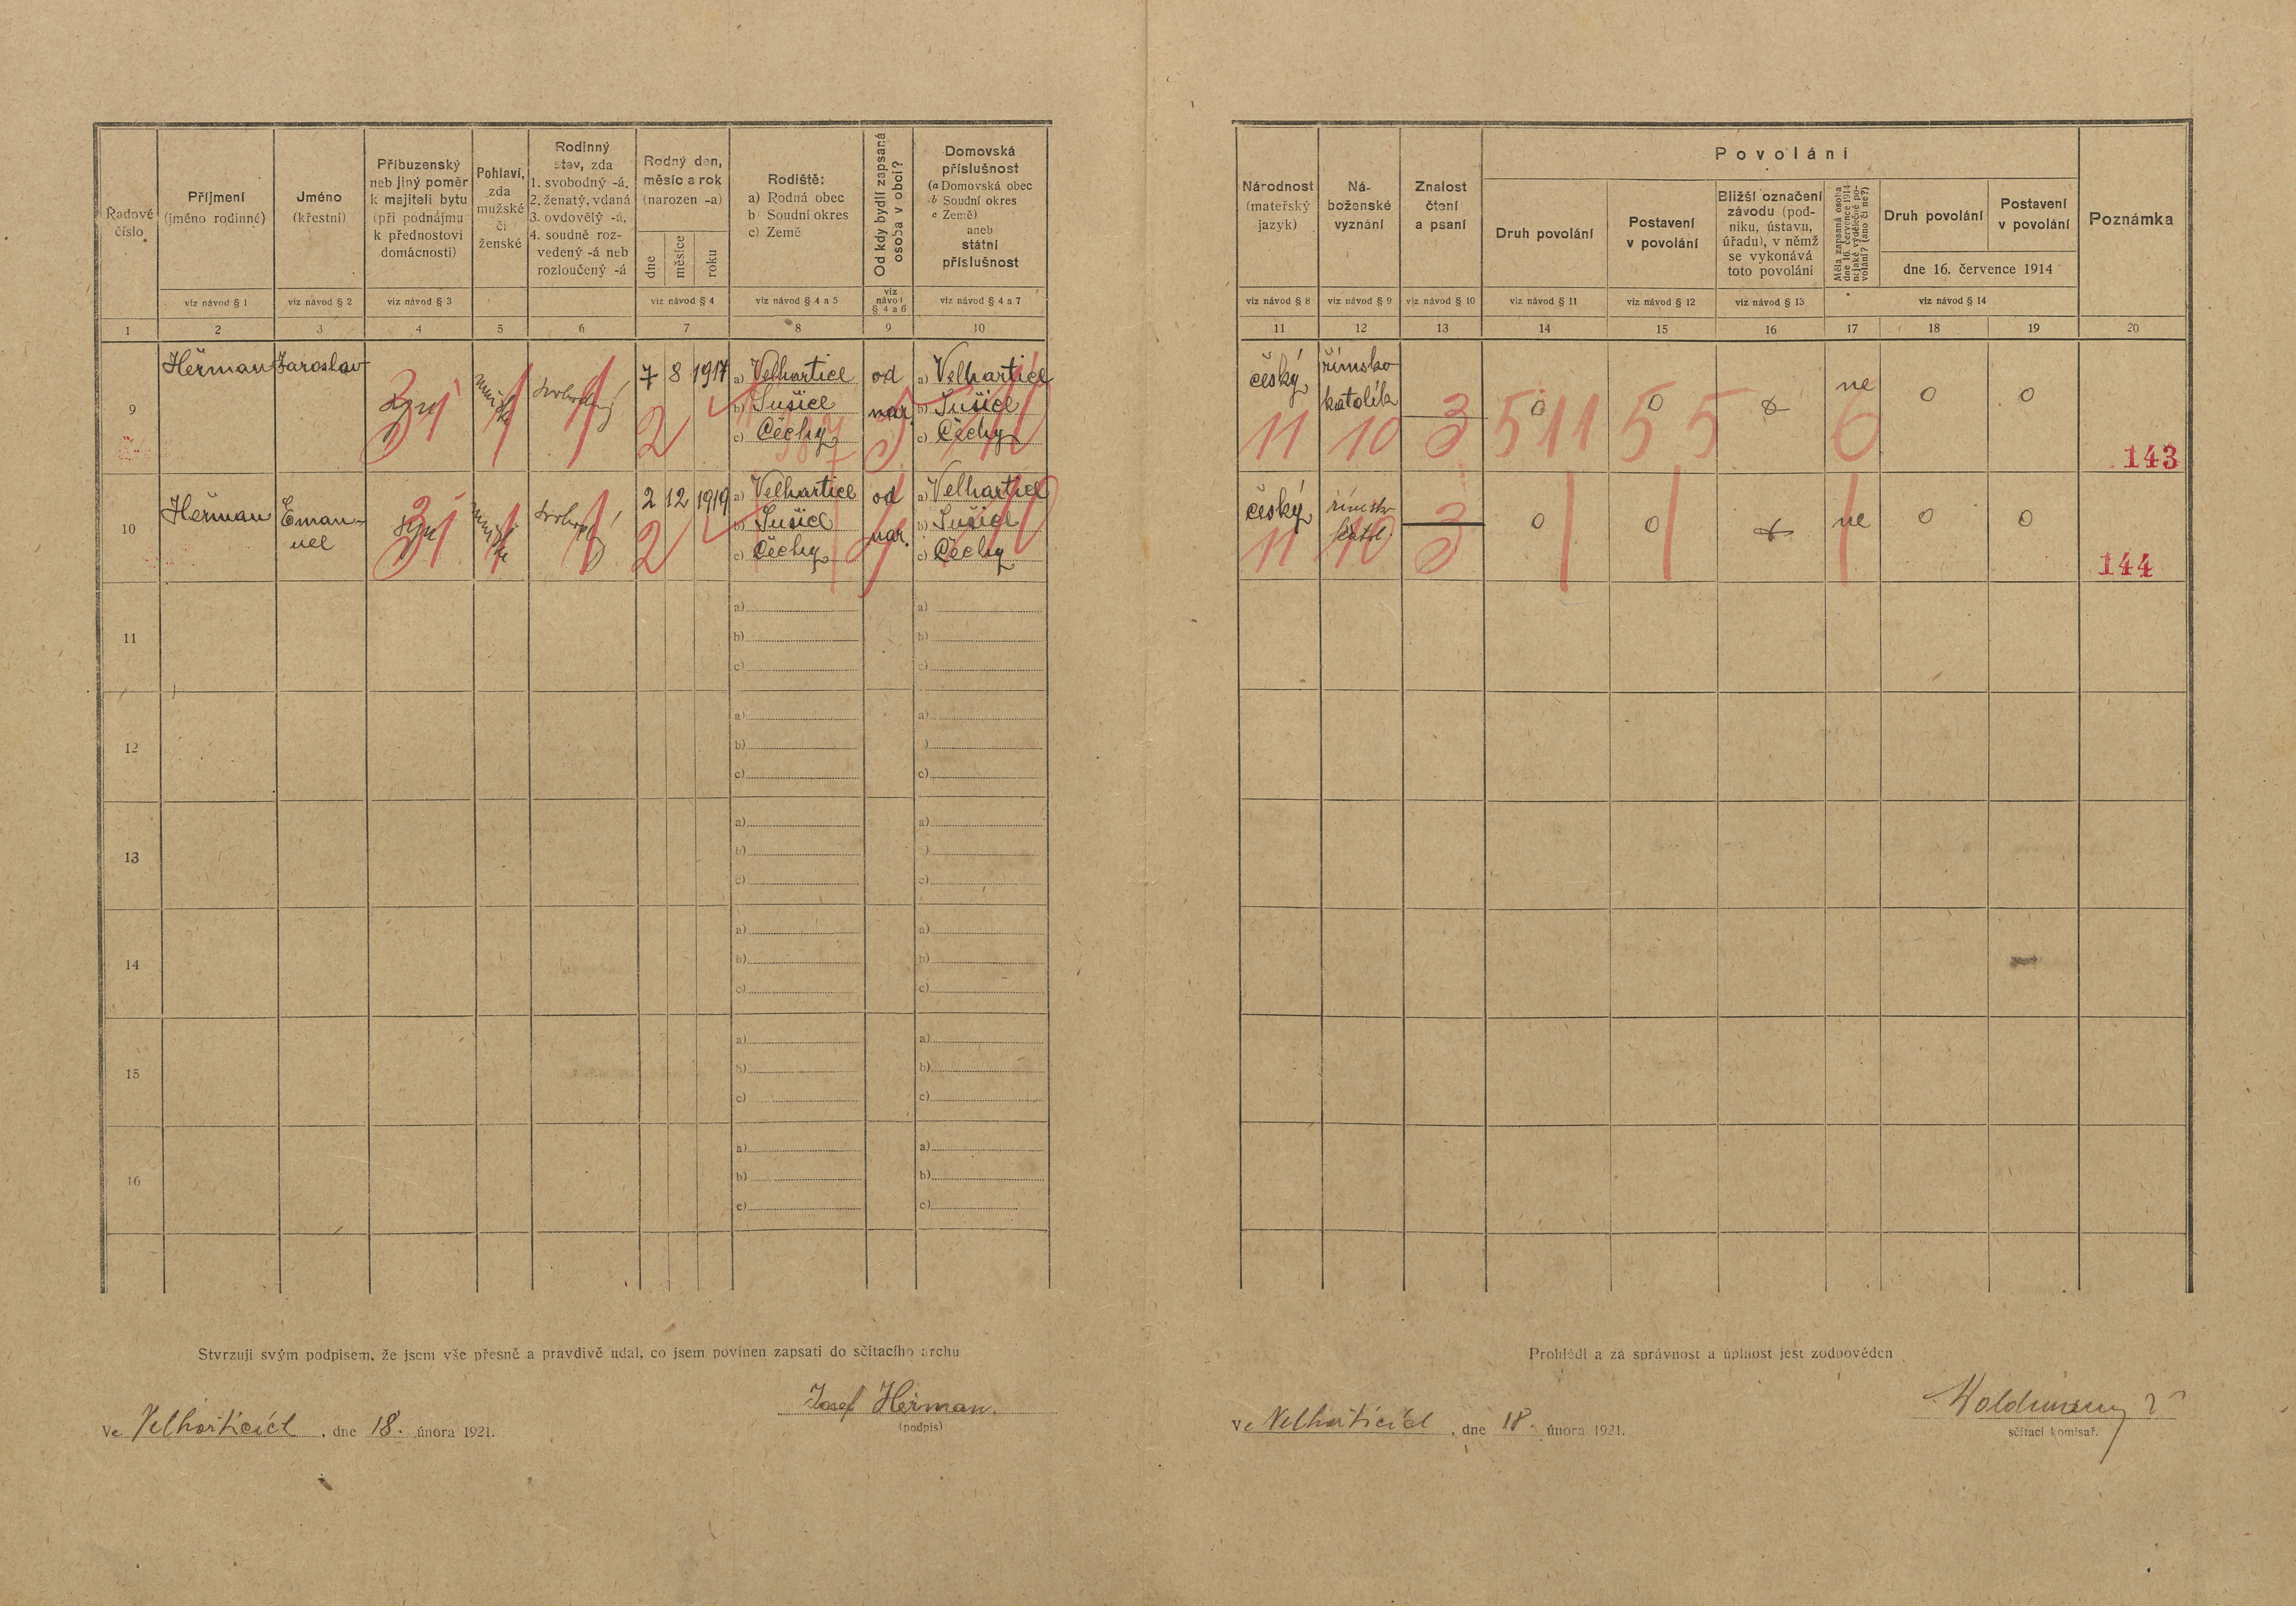 Řadové číslo
Příjmení
(jméno rodinné)
viz návod § 1
Jméno
(křestní)
viz návod § 2
Příbuzenský
neb jiný poměr
k majiteli bytu
(při podnájmu
k přednostovi
domácnosti)
viz návod § 3
Pohlaví,
zda
mužské
či
ženské
Rodinný
stav, zda
1. svobodný -á,
2. ženatý, vdaná
3. ovdovělý -á,
4. soudně roz-
vedený -á neb
rozloučený -á
Rodný den,
měsíc a rok
(narozen -a)
dne
měsíce
roku
viz návod § 4
Rodiště:
a) Rodná obec
b) Soudní okres
c) Země
viz návod § 4 a 5
Od kdy bydlí zapsaná
osoba v obci?
viz
návod
§ 4 a 6
Domovská
příslušnost
(a Domovská obec
b Soudní okres
c Země)
aneb
státní
příslušnost
viz návod § 4 a 7
Národnost
(mateřský
jazyk)
viz návod § 8
Ná-
boženské
vyznání
viz návod § 9
Znalost
čtení
a psaní
viz návod § 10
Povolání
Druh povolání
viz návod § 11
Postavení
v povolání
viz návod § 12
Bližší označení
závodu (pod-
niku, ústavu,
úřadu), v němž
se vykonává
toto povolání
viz návod § 13
Měla zapsaná osoba
dne 16. července 1914
nějaké výdělečné po-
volání? (ano či ne?)
Druh povolání
Postavení
v povolání
dne 16. července 1914
viz návod § 14
Poznámka
1 2 3 4 5 6 7 8 9 10 11 12 13 14 15 16 17 18 19 20
9 Heřman Jaroslav syn mužské svobodný 7 8 1917
a) Velhartice
b) Sušice
c) Čechy
od
nar.
a) Velhartice
b) Sušice
c) Čechy
český
římsko
katolík
0 0 0 ne 0 0
31 1 1 2 11 10 3 511 5 5 6
143
10 Heřman Eman-
uel
syn mužské svobodný 2 12 1919
a) Velhartice
b) Sušice
c) Čechy
od
nar.
a) Velhartice
b) Sušice
c) Čechy
český
římsko
katol.
0 0 0 ne 0 0
31 1 1 2 11 10 3
144
11
a)
b)
c)
a)
b)
c)
12
a)
b)
c)
a)
)
c)
13
a)
b)
c)
a)
)
c)
14
a)
b)
c)
a)
b)
c)
15
a)
b)
c)
a)
b)
c)
16
a)
b)
c)
a)
b)
c)
Stvrzuji svým podpisem, že jsem vše přesně a pravdivě udal, co jsem povinen zapsati do sčítacího archu
Josef Heřman.
(podpis)
Ve Velharticích, dne 18. února 1921.
Prohlédl a za správnost a úplnost jest zodpověden
sčítací komisař.
Ve Velharticích, dne 18. února 1921.